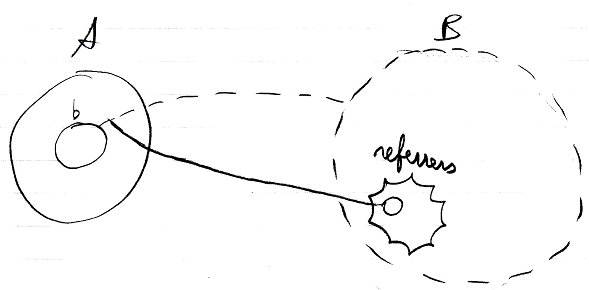 A
B
b
referrers